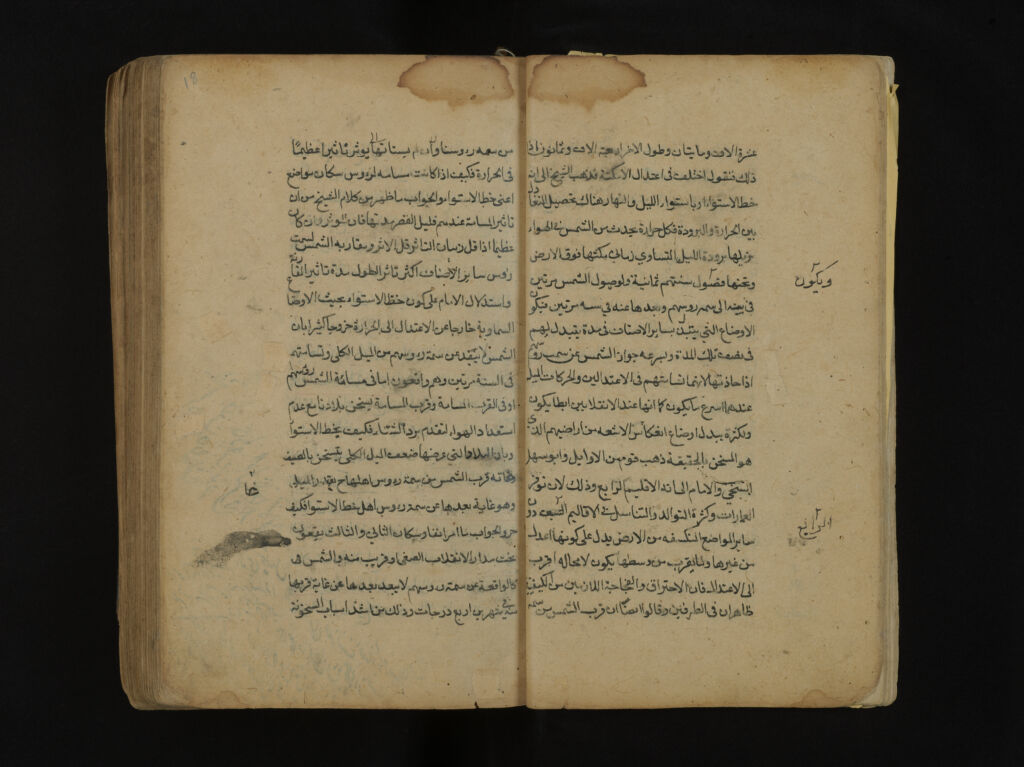 عشرة الاف ومايتان وطول الاخر اربعة الاف وثمانون اذا
ذلك فنقول اختلف في اعتدال الامكنة فذهب الشيخ الى ان
خط الاستواء باستواء الليل والنهار هناك تحصيل التعادل
بين الحرارة والبرودة فكل حرارة تحدث من الشمس في الهواء
يزيلها برودة الليل المتساوي زمانا مكثها فوق الارض
وتحتها فصول سنتهم ثمانية ولوصول الشمس مرتين
في سنة الى سمت رؤسهم وبعدها عنه في سنة مرتين فيكون
الاوضاع التي يتبدل بساير الاصناف في مدة يتبدل لهم
في نصف تلك المدة ولسرعة جواز الشمس عن سمت رؤسهم
اذا حاذتها لانها تسامتهم في الاعتدالين والحركات الميل
عندهما اسرع ما يكون كما انها عند الانقلابين ابطا يكون
ولكثرة تبدل اوضاع انعكاس الاشعة من اراضيهم الذي
هو المسخن بالحقيقة ذهب قوم من الاوايل وابو سهل
المسيحي والامام الى انه الاقليم الرابع وذلك لان توفر
العمارات وكثرة التوالد والتناسل في الاقاليم السبعة دون
ساير المواضع المنكشفة من الارض يدل على كونها اعدل
من غيرها وما يقرب من وسطها يكون لا محاله اقرب
الى الاعتدال فان الاحتراق والفجاجة اللازمين من الكيفية
ظاهران في الطرفين وقالوا ايضا ان قرب الشمس من سمت
ويكون
الرابع
18
من سمت رؤسنا يوثر تاثيرا عظيما
في الحرارة فكيف اذا كانت مسامتة لرؤس سكان مواضع
اعني خط الاستواء والجواب ما ظهر من كلام الشيخ من ان
تاثير المسامتة عندهم قليل لقصر مدتها فان الموثر وان كان
عظيما اذا قل زمان التاثر قل الاثر ومقاربة الشمس لسمت
رؤس ساير الاصناف اكثر تاثرا لطول مدة تاثير المقاربة
واستدلال الامام على كون خط الاستواء بحيث الاوضاع
السماوية خارجا عن الاعتدال الى الحرارة خروجا كثيرا بان
الشمس لا يبعد عن سمت رؤسهم من الميل الكلي وتسامتهم
في السنة مرتين وهم دائمون اما في مسامتة الشمس رؤسهم
او في القرب المسامتة وقرب المسامتة يسخن بلادنا مع عدم
استعداد الهواء لتقدم برد الشتاء فكيف بخط الاستواء
وبان البلاد التي عرضها ضعف الميل الكلي يسخن بالصيف
قرب الشمس من سمت رؤس اهلها ح بقدر الميل
وهو غاية بعدها عن سمت رؤس اهل خط الاستوا فكيف
حره والجواب ما مر انفا وسكان الثاني والثالث يقعون
تحت مدار الانقلاب الصيفي وقريب منه والشمس في
كالواقفة عن سمت رؤسهم لا يبعد بعدها عن غاية قربها
في شهرين اربع درجات وذلك من اشد اسباب السخونة
خا